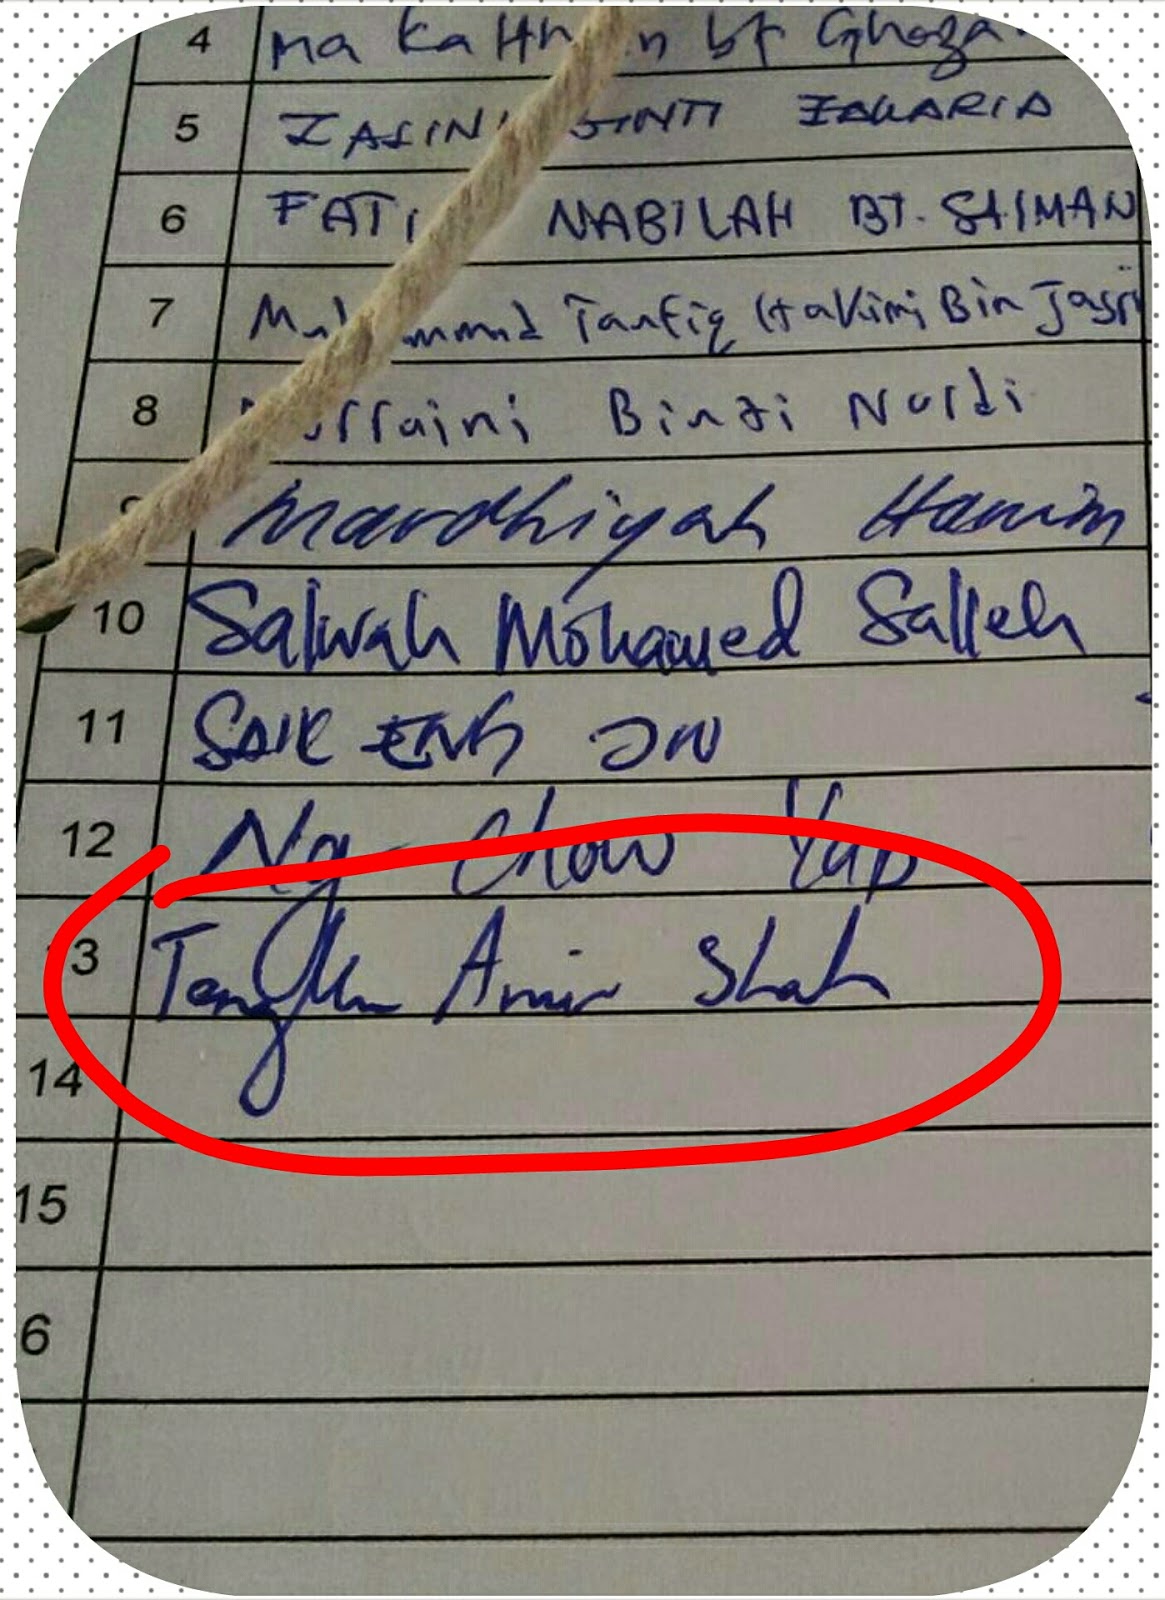 4 ma Ka bt Ghoza
5 BINTI ZAKARIA
6 FATI NABILAH BT. SAIMAN
7 Taufiq Hakimi Bin Jasri
8 Binti Nordi
9 Mardhiyah Hanim
10 Salwah Mohamed Salleh
11 ENG JIN
12 Ng Chow Yap
13 Tengku Amir Shah
14
15
6